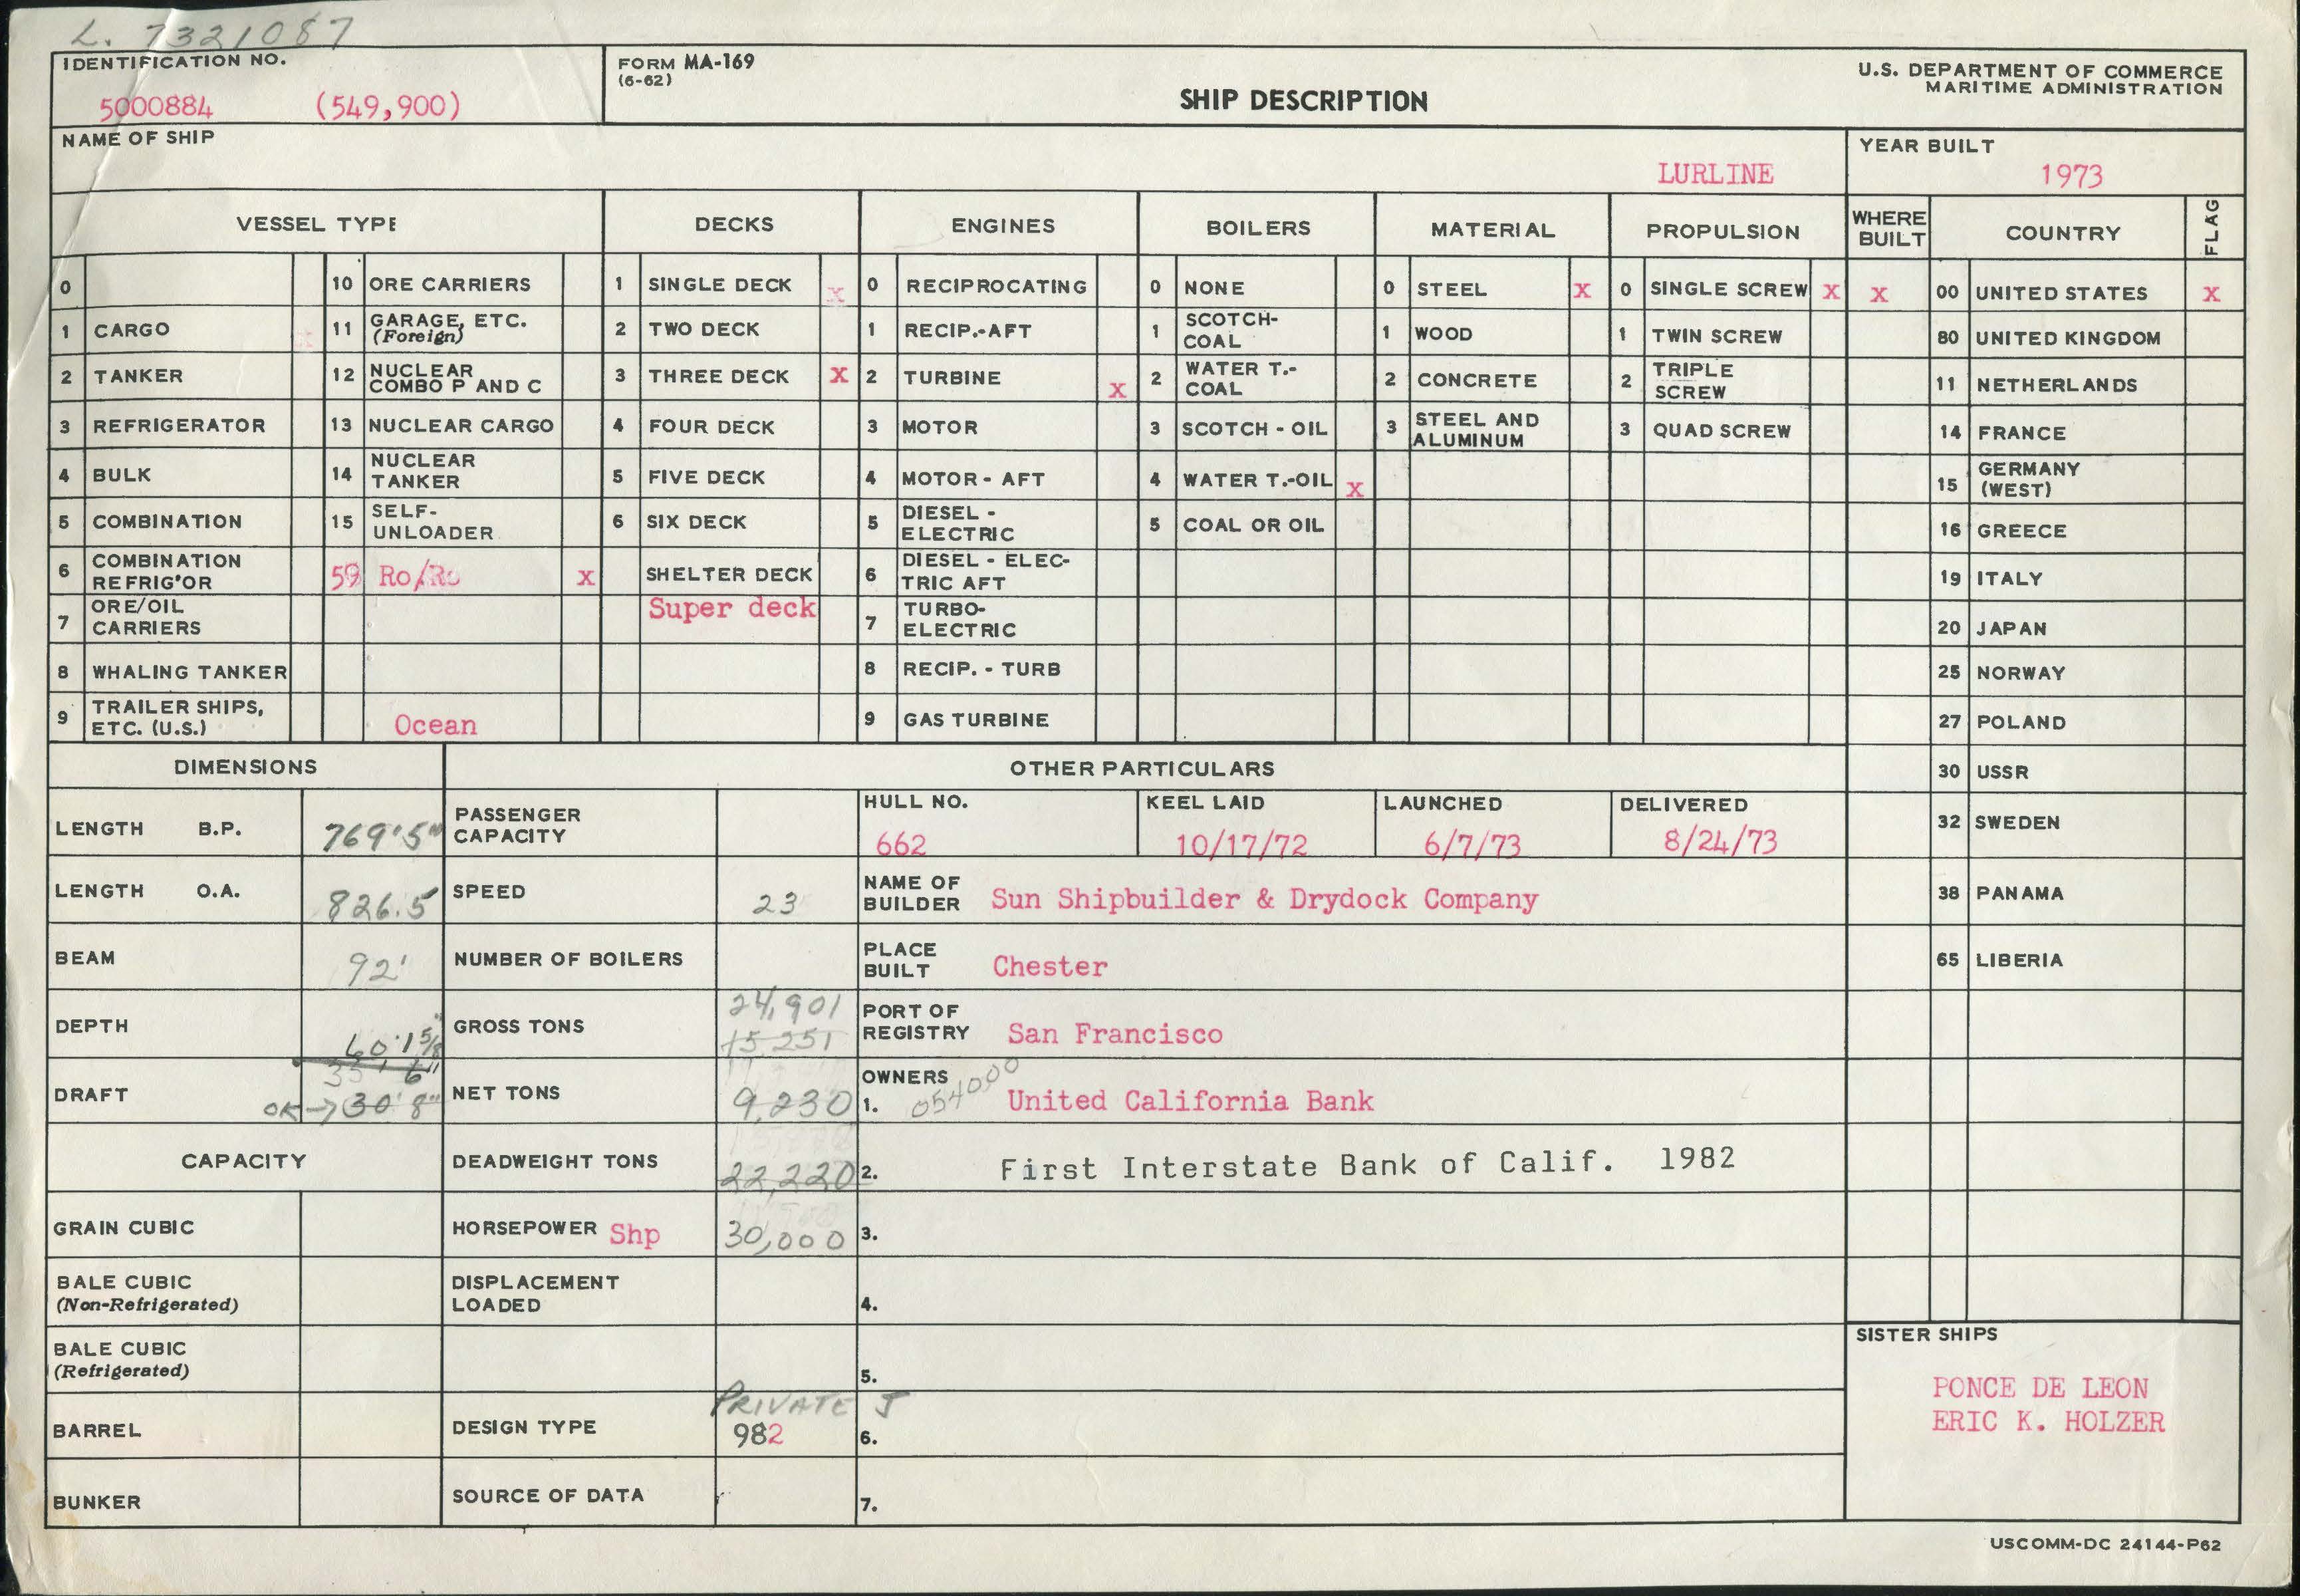 L. 7321087
IDENTIFICATION NO.
5000884 (549,900)
FORM MA-169
(6-62)
SHIP DESCRIPTION
U.S. DEPARTMENT OF COMMERCE
MARITIME ADMINISTRATION
NAME OF SHIP
LURLINE
YEAR BUILT
1973
VESSEL TYPE DECKS ENGINES BOILERS MATERIAL PROPULSION WHERE BUILT COUNTRY FLAG
0 10 ORE CARRIERS 1 SINGLE DECK x 0 RECIPROCATING 0 NONE 0 STEEL x 0 SINGLE SCREW x x 00 UNITED STATES x
1 CARGO 11 GARAGE, ETC. (Foreign) 2 TWO DECK 1 RECIP.-AFT 1 SCOTCH-COAL 1 WOOD 1 TWIN SCREW 80 UNITED KINGDOM
2 TANKER 12 NUCLEAR COMBO P AND C 3 THREE DECK x 2 TURBINE x 2 WATER T.-COAL 2 CONCRETE 2 TRIPLE SCREW 11 NETHERLANDS
3 REFRIGERATOR 13 NUCLEAR CARGO 4 FOUR DECK 3 MOTOR 3 SCOTCH - OIL 3 STEEL AND ALUMINUM 3 QUAD SCREW 14 FRANCE
4 BULK 14 NUCLEAR TANKER 5 FIVE DECK 4 MOTOR - AFT 4 WATER T.-OIL x 15 GERMANY (WEST)
5 COMBINATION 15 SELF-UNLOADER 6 SIX DECK 5 DIESEL - ELECTRIC 5 COAL OR OIL 16 GREECE
6 COMBINATION REFRIG'OR 59 Ro/Ro x SHELTER DECK 6 DIESEL - ELECTRIC AFT 19 ITALY
7 ORE/OIL CARRIERS Super deck 7 TURBO-ELECTRIC 20 JAPAN
8 WHALING TANKER 8 RECIP. - TURB 25 NORWAY
9 TRAILER SHIPS, ETC. (U.S.) Ocean 9 GAS TURBINE 27 POLAND
30 USSR
32 SWEDEN
38 PANAMA
65 LIBERIA
DIMENSIONS
OTHER PARTICULARS
LENGTH B.P. 769'5"
PASSENGER CAPACITY
HULL NO. 662
KEEL LAID 10/17/72
LAUNCHED 6/7/73
DELIVERED 8/24/73
LENGTH O.A. 826.5
SPEED 23
NAME OF BUILDER Sun Shipbuilder & Drydock Company
BEAM 92'
NUMBER OF BOILERS
PLACE BUILT Chester
DEPTH 60'1 5/8"
GROSS TONS 24,901
15,251
PORT OF REGISTRY San Francisco
DRAFT 6"
OK→ 30' 8"
NET TONS 9,230
OWNERS 054000
1. United California Bank
CAPACITY
DEADWEIGHT TONS 22,220
2. First Interstate Bank of Calif. 1982
GRAIN CUBIC
HORSEPOWER Shp 30,000
3.
BALE CUBIC
(Non-Refrigerated)
DISPLACEMENT LOADED
4.
BALE CUBIC
(Refrigerated)
5.
BARREL
DESIGN TYPE
PRIVATE J
982
6.
BUNKER
SOURCE OF DATA
7.
SISTER SHIPS
PONCE DE LEON
ERIC K. HOLZER
USCOMM-DC 24144-P62